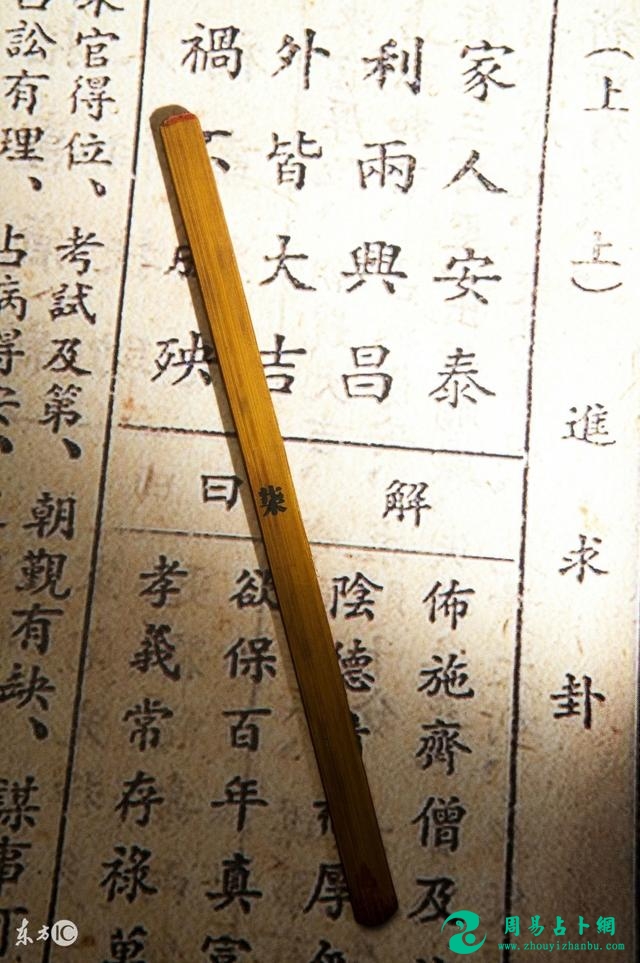 （上上）進求卦
家人安泰
利兩興昌
外皆大吉
禍殃
解曰
佈施齊僧及
陰德厚
欲保百年真富
孝義常存祿萬
官得位、考試及第、朝覲有缺、謀事可
訟有理、占病得安、
柒
东方IC
周易占卜網
www.zhouyizhanbu.com